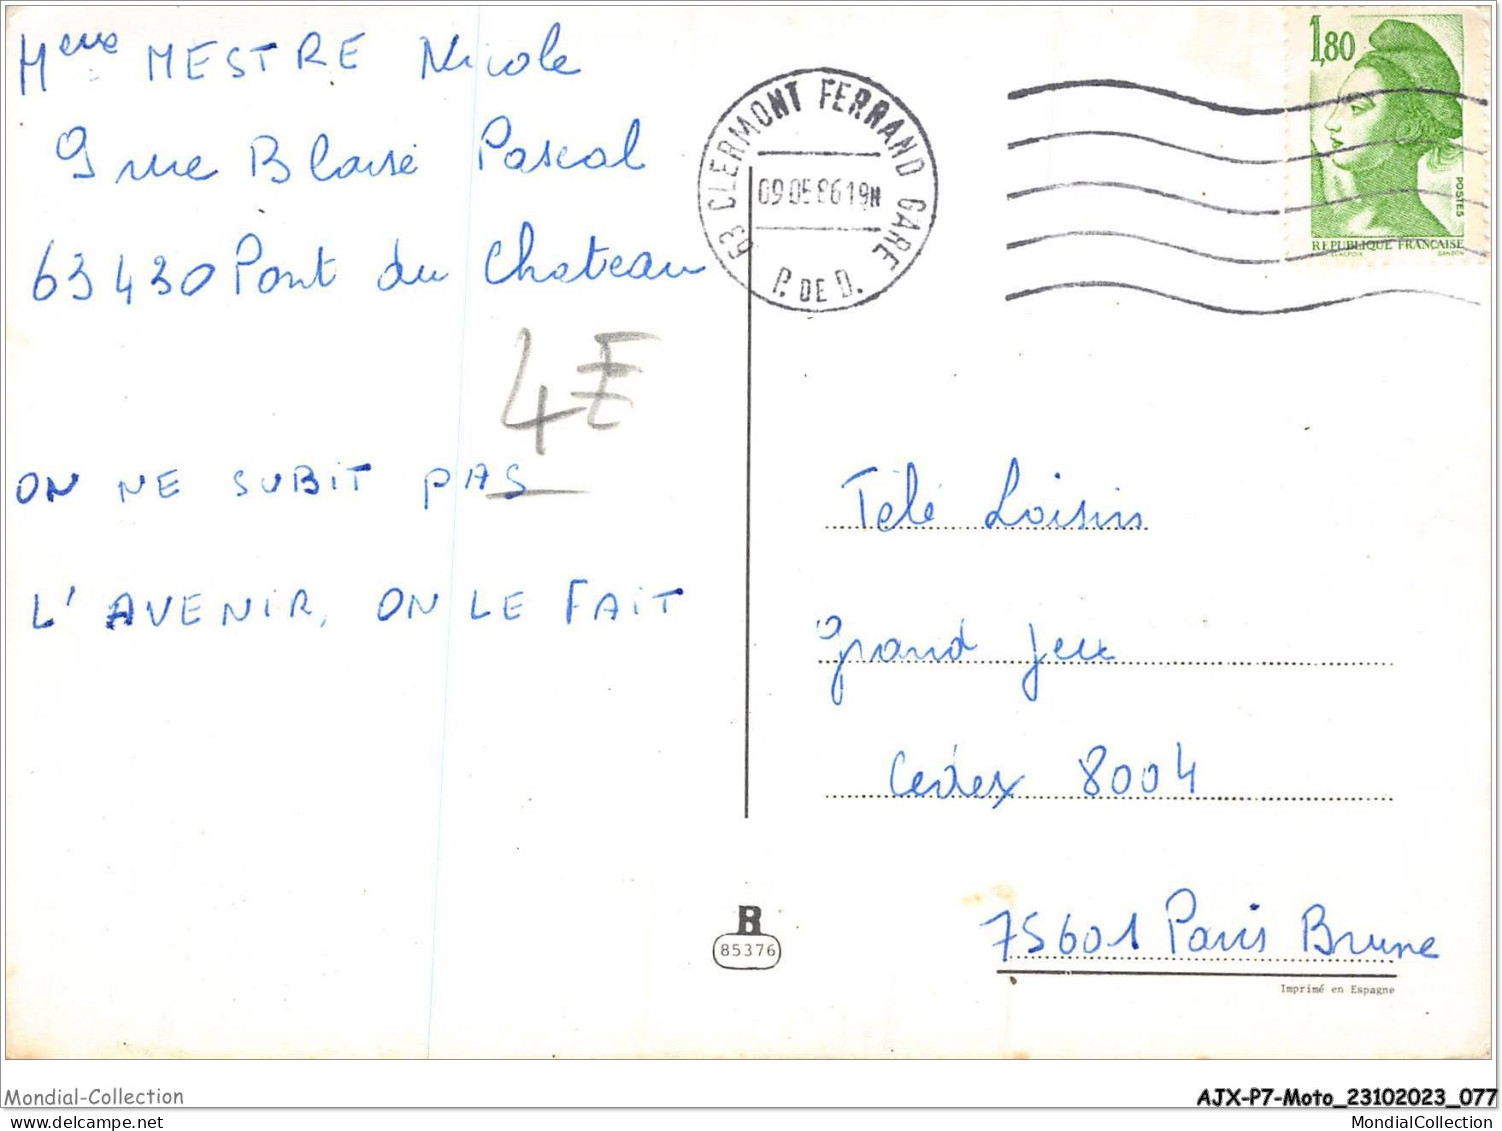 Meue MESTRE Nicole
9 rue Blaise Pascal
63430 Pont du Chateau
4E
ON NE SUBIT PAS
L'AVENIR, ON LE FAIT
63 CLERMONT FERRAND GARE
09 05 86 19H
P. DE D.
1,80
POSTES
REPUBLIQUE FRANÇAISE
GANDON
Télé Loisirs
grand Jeu
Cedex 8004
75601 Paris Brune
Imprimé en Espagne
B
85376
Mondial-Collection
AJX-P7-Moto_23102023_077
MondialCollection